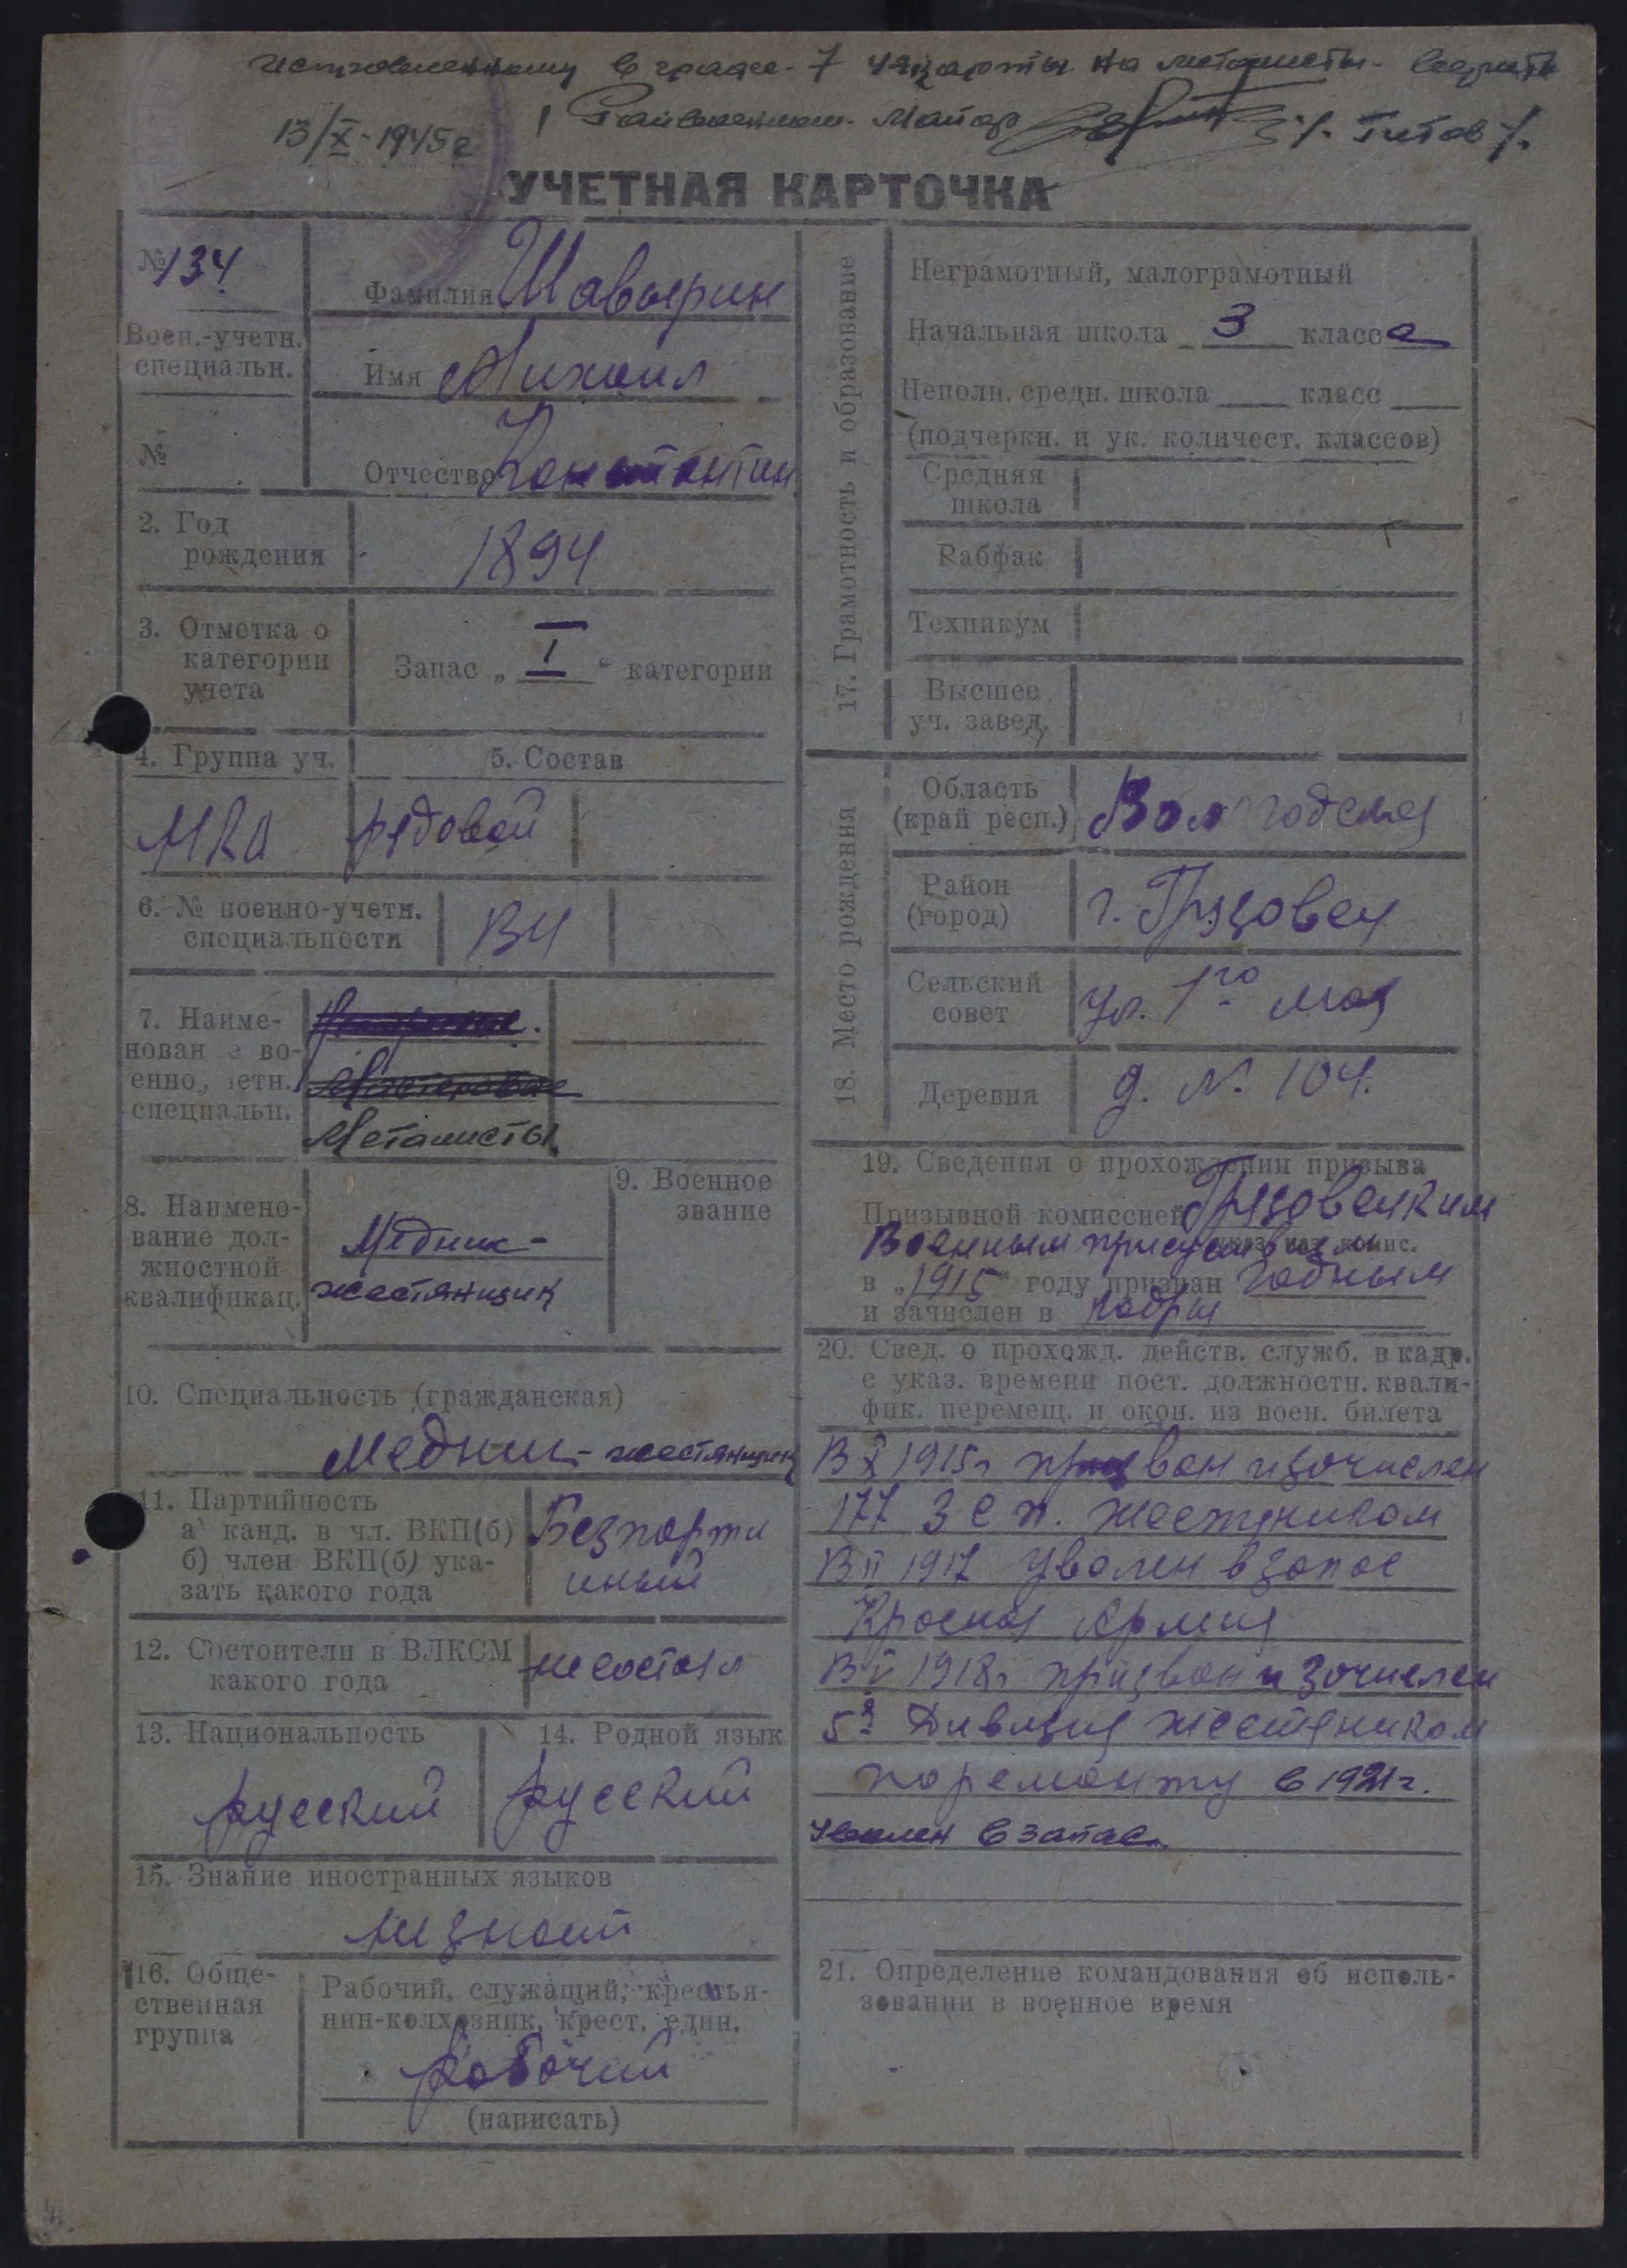 Исправленному в графе-7 учкарты на металисты- верить
13/X-1945г
Райвоенком- Майор /. Титов /.
УЧЕТНАЯ КАРТОЧКА
№ 134
Фамилия Шавырин
Воен.-учетн. специальн.
Имя Михаил
№
Отчество Константин
2. Год рождения
1894
3. Отметка о категории учета
Запас „ I “ категории
4. Группа уч.
5. Состав
рядовой
6. № военно-учетн. специальности
134
7. Наименован е военно, четн. специальн.
Металисты
8. Наименование должностной квалификац.
Медник-
жестянщик
9. Военное звание
10. Специальность (гражданская)
Медник-жестянщик
11. Партийность
а) канд. в чл. ВКП(б)
б) член ВКП(б) указать какого года
Безпарти
иный
12. Состоители в ВЛКСМ какого года
не состоял
13. Национальность
русский
14. Родной язык
русский
15. Знание иностранных языков
незнает
16. Общественная группа
Рабочий, служащий, крестья-
нин-колхозник, крест. един.
рабочий
(написать)
17. Грамотность и образование
Неграмотный, малограмотный
Начальная школа 3 класса
Неполн. средн. школа ___ класс ___
(подчеркн. и ук. количест. классов)
Средняя школа
Рабфак
Техникум
Высшее уч. завед.
18. Место рождения
Область (край респ.)
Вологодская
Район (город)
г. Грязовец
Сельский совет
ул. 1го мая
Деревня
д. № 104.
19. Сведения о прохождении призыва
Призывной комиссией Грязовецким
Военным присутствием
в „1915“ году признан годным
и зачислен в кадры
20. Свед. о прохожд. действ. служб. в кадр.
с указ. времени пост. должностн. квали-
фик. перемещ. и окон. из воен. билета
В X 1915г призван и зачислен
177 З с п. жестяником
В II 1917 уволен в запас
Красная Армия
В V 1918г призван и зачислен
5я Дивизия жестяником
по ремонту в 1921г.
уволен в запас.
21. Определение командования об исполь-
зовании в военное время